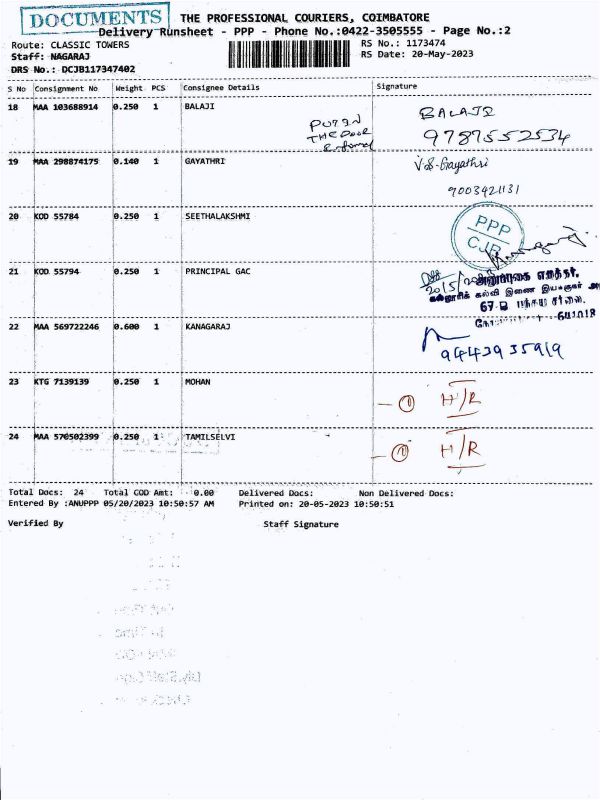 DOCUMENTS
THE PROFESSIONAL COURIERS, COIMBATORE
Delivery Runsheet - PPP - Phone No.:0422-3505555 - Page No.:2
Route: CLASSIC TOWERS RS No.: 1173474
Staff: NAGARAJ RS Date: 20-May-2023
DRS No.: DCJB117347402
S No Consignment No Weight PCS Consignee Details Signature
18 MAA 103688914 0.250 1 BALAJI BALAJI
PUT IN
THE DOOR
9787552534
19 MAA 298874175 0.140 1 GAYATHRI V.S-Gayathri
9003421131
20 KOD 55784 0.250 1 SEETHALAKSHMI
PPP
CJB
21 KOD 55794 0.250 1 PRINCIPAL GAC
கல்லூரிக் கல்வி இணை
641018
22 MAA 569722246 0.600 1 KANAGARAJ
9443935919
23 KTG 7139139 0.250 1 MOHAN - 1 H/R
24 MAA 570502399 0.250 1 TAMILSELVI - 1 H/R
Total Docs: 24 Total COD Amt: 0.00 Delivered Docs: Non Delivered Docs:
Entered By :ANUPPP 05/20/2023 10:50:57 AM Printed on: 20-05-2023 10:50:51
Verified By Staff Signature